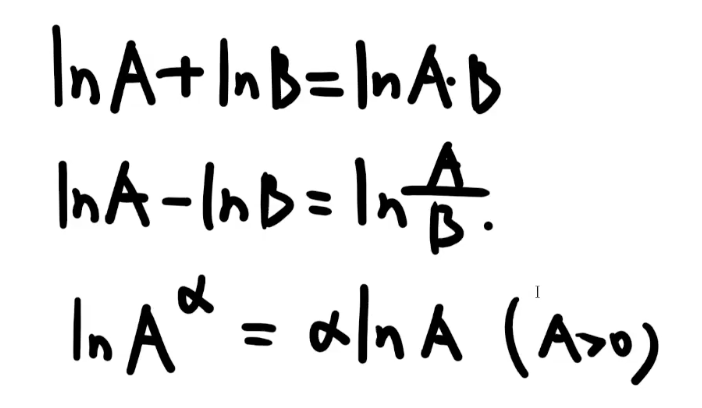 lnA+lnB=lnA·B
lnA-lnB=ln\frac{A}{B}.
lnA^α=αlnA (A>0)